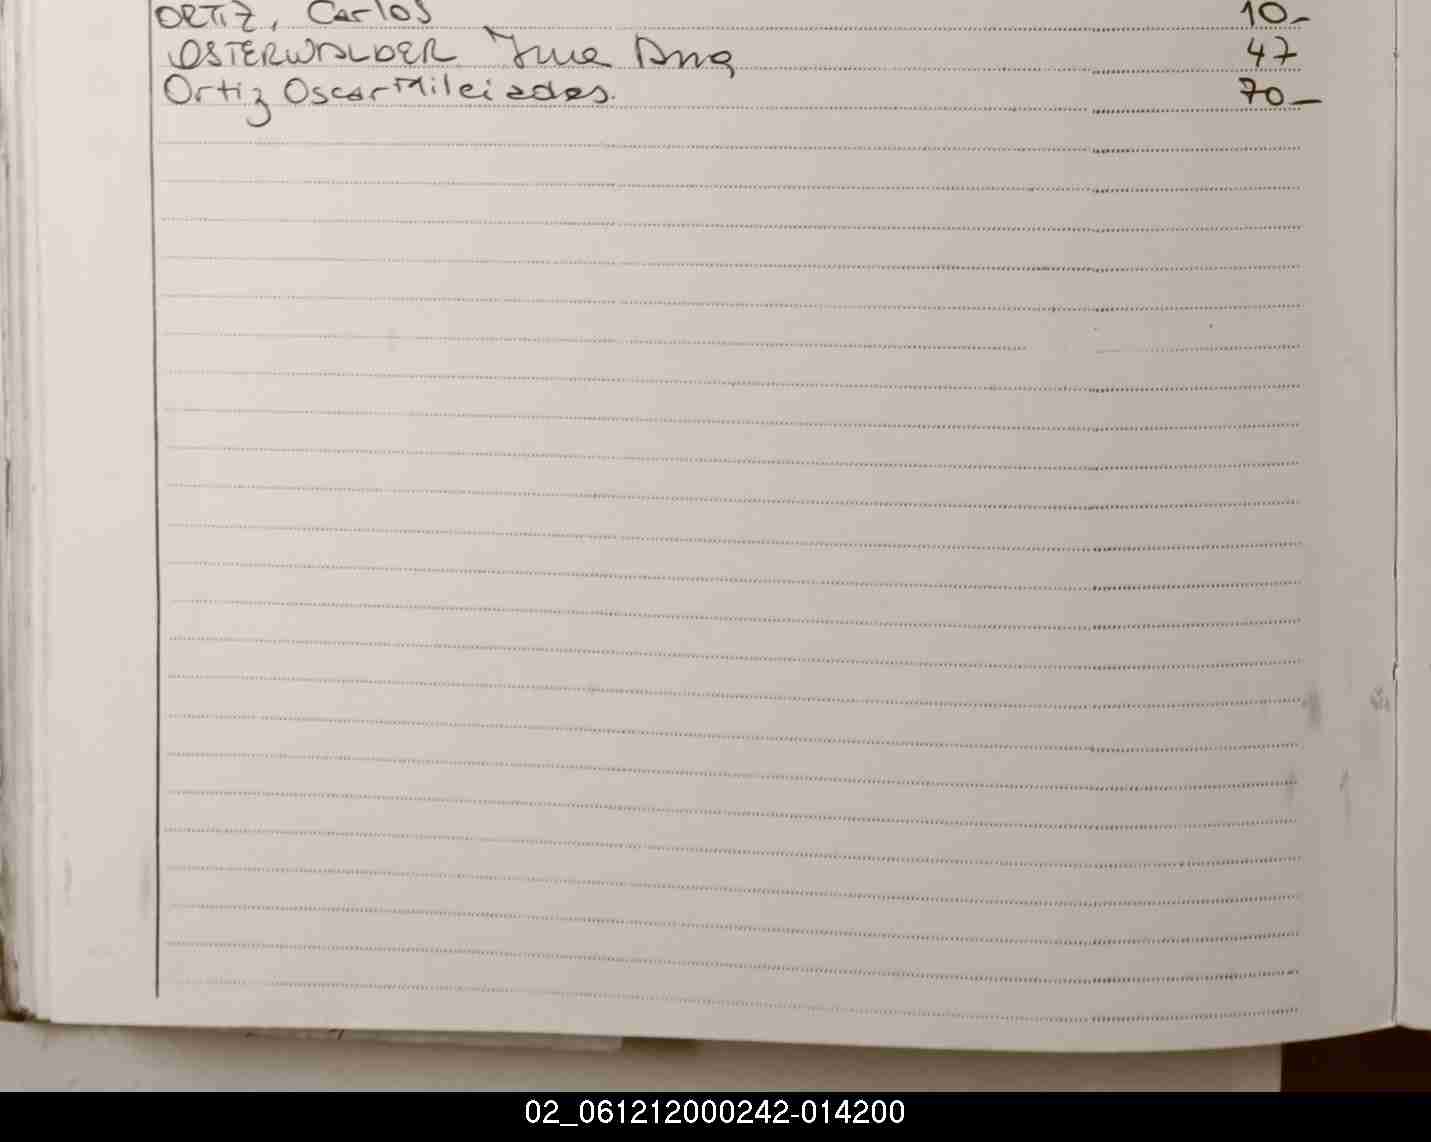 ORTIZ, Carlos 10-
OSTERWALDER Ana 47
Ortiz Oscar Mileiades. 70-
02_061212000242-014200